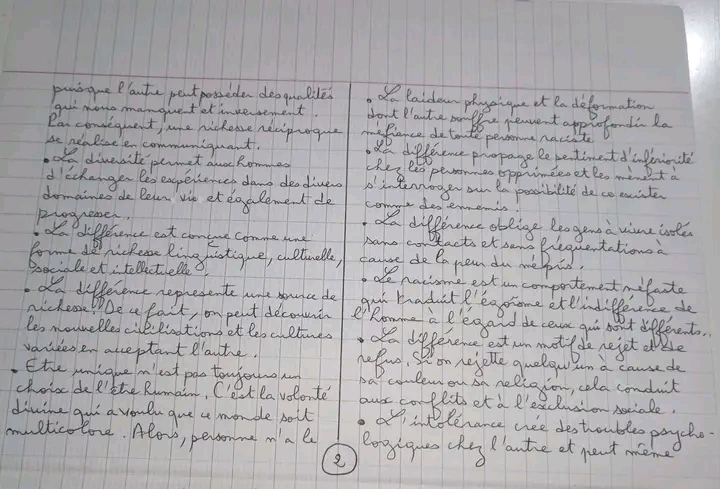 puisque l'autre peut posséder des qualités
qui nous manquent et inversement.
Par conséquent, une richesse réciproque
se réalise en communiquant.
• La diversité permet aux hommes
d'échanger les expériences dans des divers
domaines de leur vie et également de
progresser.
• La différence est conçue comme une
forme de richesse linguistique, culturelle,
sociale et intellectuelle.
• La différence représente une source de
richesse. De ce fait, on peut découvrir
les nouvelles civilisations et les cultures
variées en acceptant l'autre.
• Etre unique n'est pas toujours un
choix de l'être humain. C'est la volonté
divine qui a voulu que ce monde soit
multicolore. Alors, personne n'a le
• La laideur physique et la déformation
dont l'autre souffre peuvent approfondir la
méfiance de toute personne raciste
• La différence propage le sentiment d'infériorité
chez les personnes opprimées et les mènent à
s'interroger sur la possibilité de coexister
comme des ennemis.
• La différence oblige les gens à vivre isolés
sans contacts et sans fréquentations à
cause de la peur du mépris.
• Le racisme est un comportement néfaste
qui traduit l'égoïsme et l'indifférence de
l'homme à l'égard de ceux qui sont différents.
• La différence est un motif de rejet et de
refus. Si on rejette quelqu'un à cause de
sa couleur ou sa religion, cela conduit
aux conflits et à l'exclusion sociale.
• L'intolérance crée des troubles psycho-
logiques chez l'autre et peut même
2